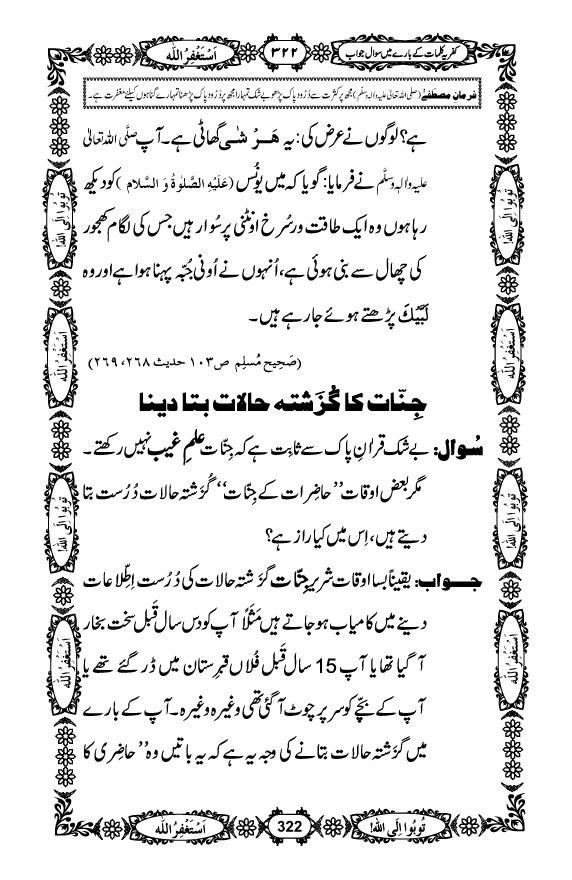 کفریہ کلمات کے بارے میں سوال جواب
۳۲۲
اَسْتَغْفِرُ اللّٰه
فرمانِ مصطَفٰے (صلی اللہ تعالیٰ علیہ والہٖ وسلّم) مجھ پر کثرت سے دُرُود پاک پڑھو بے شک تمہارا مجھ پر دُرُود پاک پڑھنا تمہارے گناہوں کیلئے مغفرت ہے۔
ہے؟ لوگوں نے عرض کی: یہ ھَرْ شٰی گھاٹی ہے۔ آپ صلَّی اللہ تعالیٰ
علیہ والہٖ وسلَّم نے فرمایا: گویا کہ میں یونُس (عَلَیْہِ الصَّلٰوۃُ وَ السَّلام) کو دیکھ
رہا ہوں وہ ایک طاقت ور سُرخ اونٹنی پر سُوار ہیں جس کی لگام کھجور
کی چھال سے بنی ہوئی ہے، اُنہوں نے اُونی جُبّہ پہنا ہوا ہے اور وہ
لَبَّیْکَ پڑھتے ہوئے جا رہے ہیں۔
(صَحِیح مُسلِم ص۱۰۳ حدیث ۲۶۸، ۲۶۹)
جِنّات کا گُزَشتہ حالات بتا دینا
سُوال: بے شک قراٰنِ پاک سے ثابِت ہے کہ جِنّات علمِ غیب نہیں رکھتے۔
مگر بعض اوقات ’’حاضِرات کے جِنّات‘‘ گُزَشتہ حالات دُرُست بتا
دیتے ہیں، اِس میں کیا راز ہے؟
جواب: یقیناً بسا اوقات شریر جِنّات گزَشتہ حالات کی دُرُست اِطِّلاعات
دینے میں کامیاب ہو جاتے ہیں مَثَلاً آپ کو دس سال قَبل سَخت بخار
آ گیا تھا یا آپ 15 سال قَبل فُلاں قبرِستان میں ڈر گئے تھے یا
آپ کے بچّے کو سر پر چوٹ آ گئی تھی وغیرہ وغیرہ۔ آپ کے بارے
میں گزَشتہ حالات بتانے کی وجہ یہ ہے کہ یہ باتیں وہ ’’حاضِری کا
تُوبُوا اِلَی اللّٰه!
اَسْتَغْفِرُ اللّٰه
تُوبُوا اِلَی اللّٰه!
اَسْتَغْفِرُ اللّٰه
تُوبُوا اِلَی اللّٰه!
اَسْتَغْفِرُ اللّٰه
تُوبُوا اِلَی اللّٰه!
اَسْتَغْفِرُ اللّٰه
تُوبُوا اِلَی اللّٰه!
322
اَسْتَغْفِرُ اللّٰه